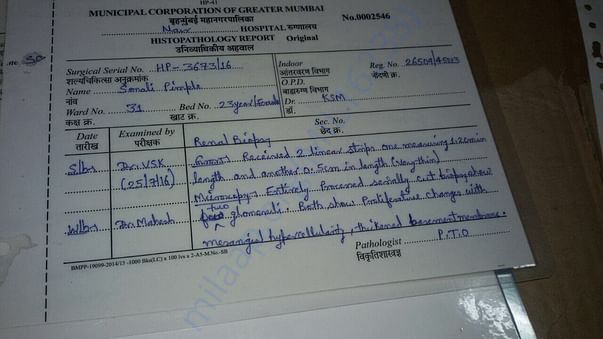 HP-41
MUNICIPAL CORPORATION OF GREATER MUMBAI
बृहन्मुंबई महानगरपालिका No.0002546
Nair HOSPITAL रुग्णालय
HISTOPATHOLOGY REPORT Original
उनिव्याधिकीय अहवाल
Surgical Serial No. HP-3673/16 Indoor Reg. No. 26504/
शल्यचिकित्सा अनुक्रमांक आंतररुग्ण विभाग नोंदणी क्र.
Name Sonali Pimple O.P.D.
नांव बाह्यरुग्ण विभाग
Ward No. 31 Bed No. 23year/Female Dr. KSM
कक्ष क्र. खाट क्र. डॉ.
Date Examined by Sec. No.
तारीख परीक्षक छेद क्र.
Renal Biopsy
S/by Dr. VSK Gross: Received 2 linear strips one measuring 1.2cm in
(25/7/16) length and another 0.5cm in length (Very thin)
Microscopy: Entirely Processed serially cut biopsy show
W/by Dr. Mahesh two glomeruli. Both show Proliferative changes with
mesangial hypercellularity, thickened basement membrane.
Pathologist P.T.O
विकृतिशास्त्रज्ञ